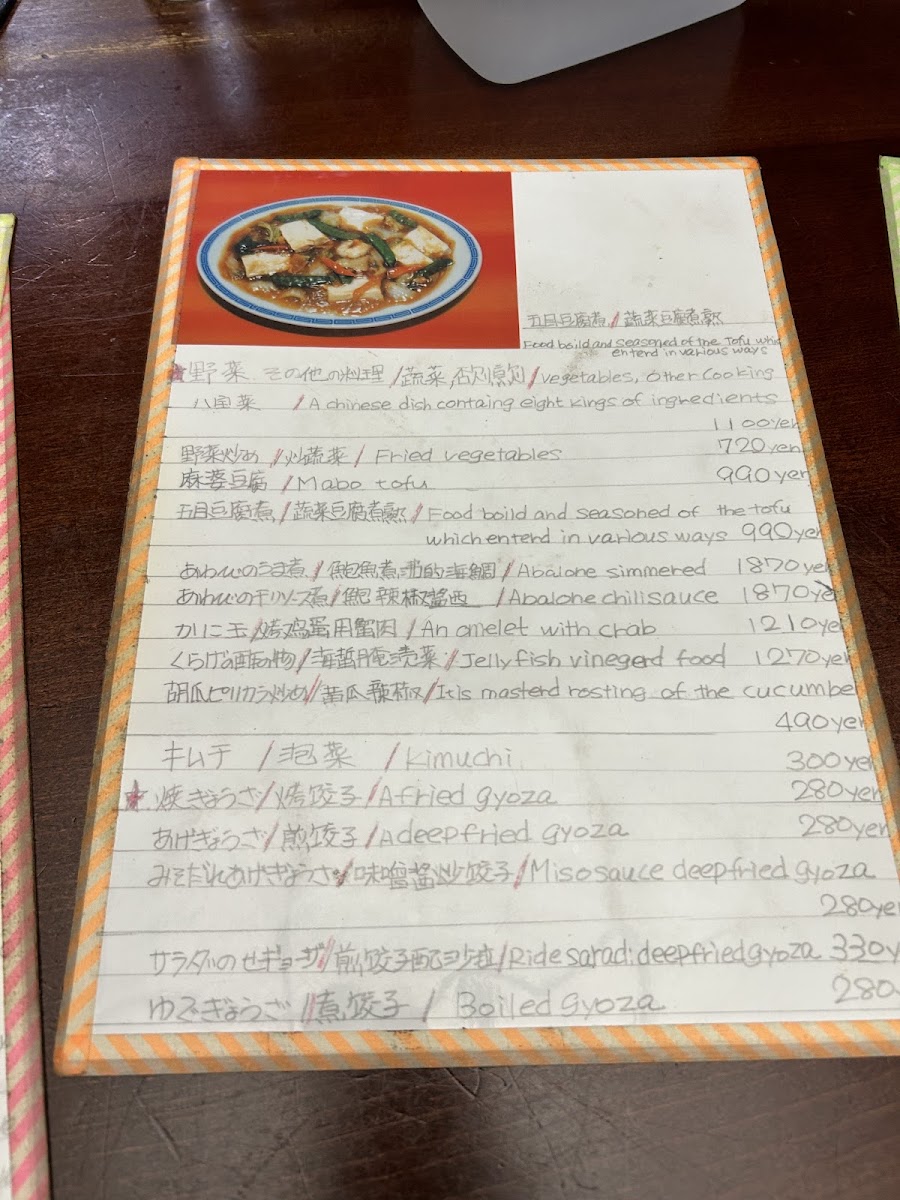 五目豆腐煮/蔬菜豆腐煮熟
Food boild and seasoned of the Tofu whic
entend in various ways
★野菜 その他の料理/蔬菜,/vegetables, other cooking
八宝菜 /A chinese dish containg eight kings of ingredients
1100yen
野菜炒め/炒蔬菜/Fried vegetables 720yen
麻婆豆腐/Mabo tofu 990yen
五目豆腐煮/蔬菜豆腐煮熟/Food boild and seasoned of the tofu
which entend in various ways 990yen
あわびのうま煮/鮑魚煮沺的海鯛/Abalone simmered 1870yen
あわびのチリソース煮/鮑辣椒醤西/Abalone chilisauce 1870ye
かに玉/烤鸡蛋用蟹肉/An omelet with crab 1210yen
くらげの酢の物/海蜇腌渍菜/Jellyfish vinegerd food 1270yen
胡瓜ピリカラ炒め/苦瓜辣椒/It is masterd rosting of the cucumbe
490yen
キムチ /泡菜 /Kimuchi 300yen
★焼きぎょうざ/烤饺子/A fried gyoza 280yen
あげぎょうざ/煎饺子/A deepfried gyoza 280yen
みそだれあげぎょうざ/味噌醤炒饺子/Miso sauce deepfried gyoza
280ye
サラダのせギョーザ/煎饺子配沙拉/Ride saradi deepfried gyoza 330y
ゆでぎょうざ/煮饺子/Boiled gyoza 280